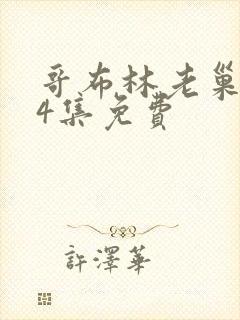 哥布林老巢
4集免費
許澤華